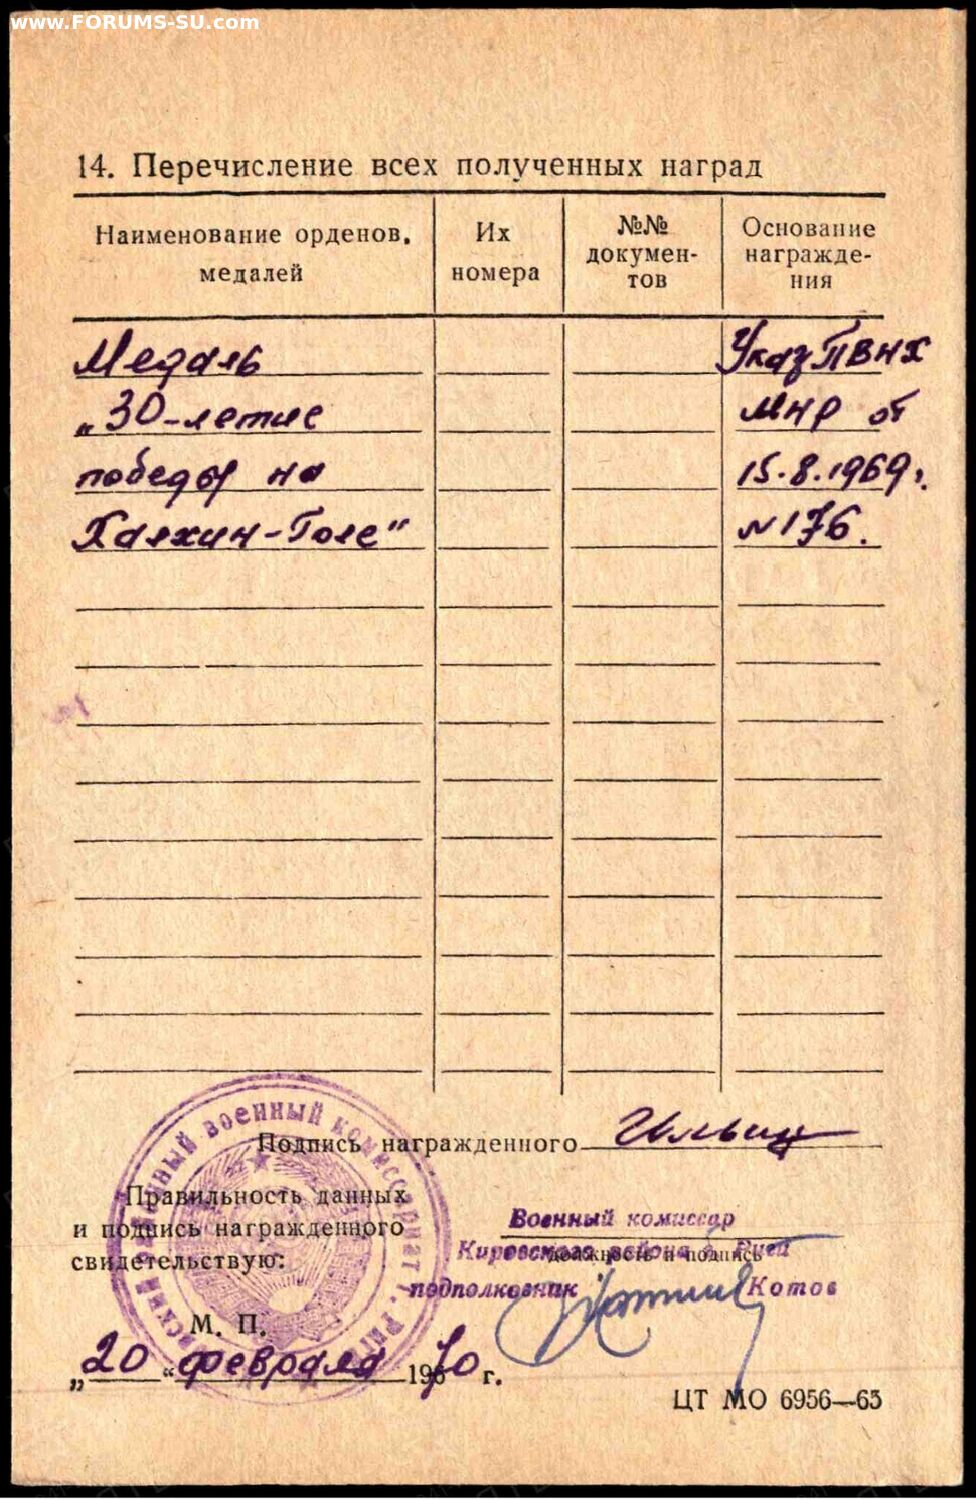 www.FORUMS-SU.com
14. Перечисление всех полученных наград
Наименование орденов, медалей
Их номера
№№ докумен-
тов
Основание награжде-
ния
Медаль
Указ ПВНХ
„30-летие
МНР от
победы на
15.8.1969г.
Халхин-Голе"
№176.
Подпись награжденного
Правильность данных
и подпись награжденного
свидетельствую:
военный комиссариат г. Рига
Военный комиссар
Кировского района г. Риги
должность и подпись
подполковник Котов
М. П.
„20" февраля 1970 г.
ЦТ МО 6956—65